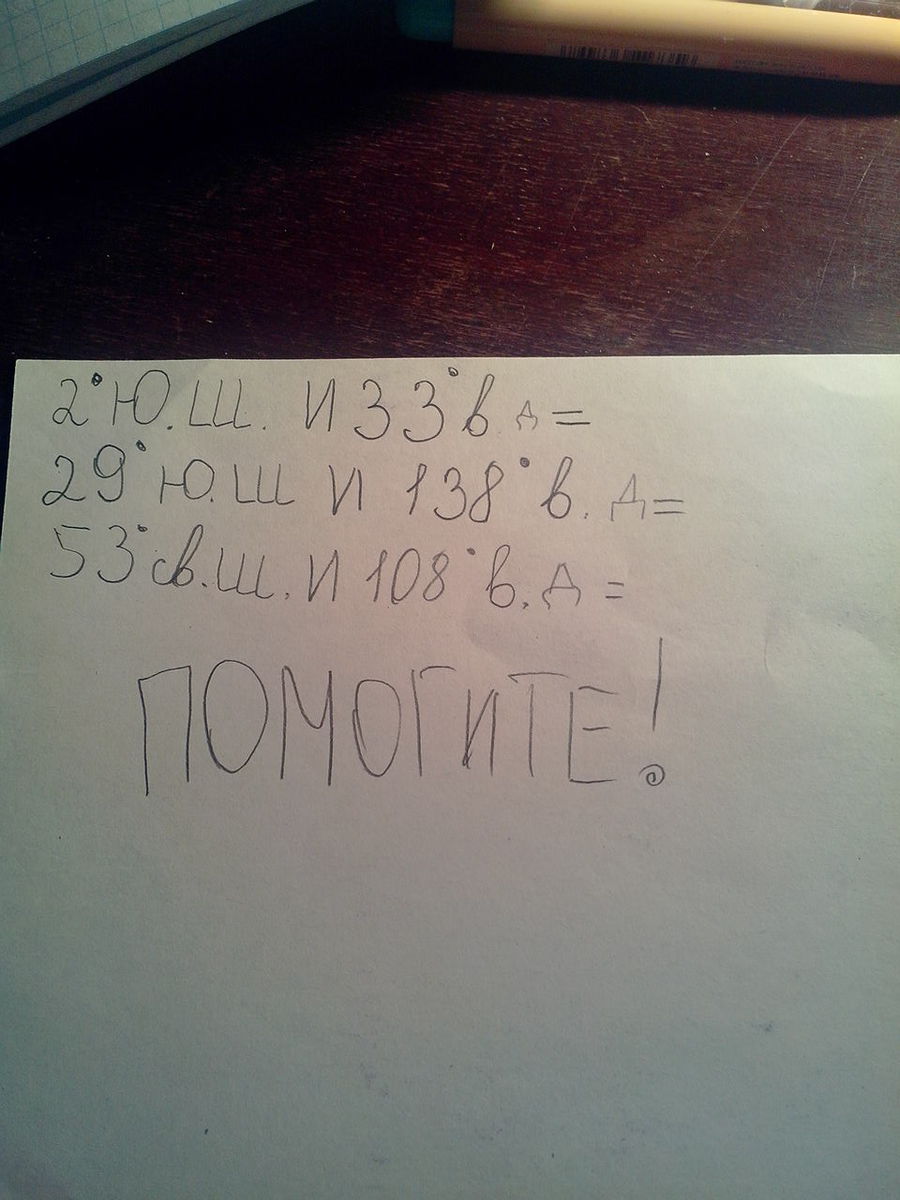 2° Ю.Ш. И 33° в.д =
29° Ю.Ш И 138° в.д=
53° св.ш. И 108° в.д =
ПОМОГИТЕ!